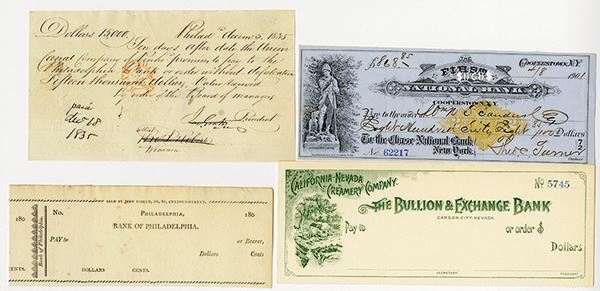 Dollars 15,000. Philad. Decem. 5, 1835
Ten days after date the Union
Canal Company of Penna promise to pay to the
Philadelphia Bank or order without defalcation
Fifteen thousand dollars, Value received
by order of the Board of managers
President
attest
paid
dec 18
1835
THE
FIRST
NATIONAL BANK
COOPERSTOWN, N.Y.
COOPERSTOWN, N.Y. 4/18 1901
$868 85
Pay to the order of
Eight Hundred Sixty Eight 85/100 Dollars
To the Chase National Bank
New York.
No 62217
180 No. PHILADELPHIA, 180
BANK OF PHILADELPHIA,
Bank of Philadelphia
PAY to or Bearer,
Dollars Cents
CENTS. DOLLARS CENTS.
CALIFORNIA-NEVADA
CREAMERY COMPANY.
No 5745
THE BULLION & EXCHANGE BANK
CARSON CITY, NEVADA.
Pay to or order $
Dollars
SECRETARY. PRESIDENT.